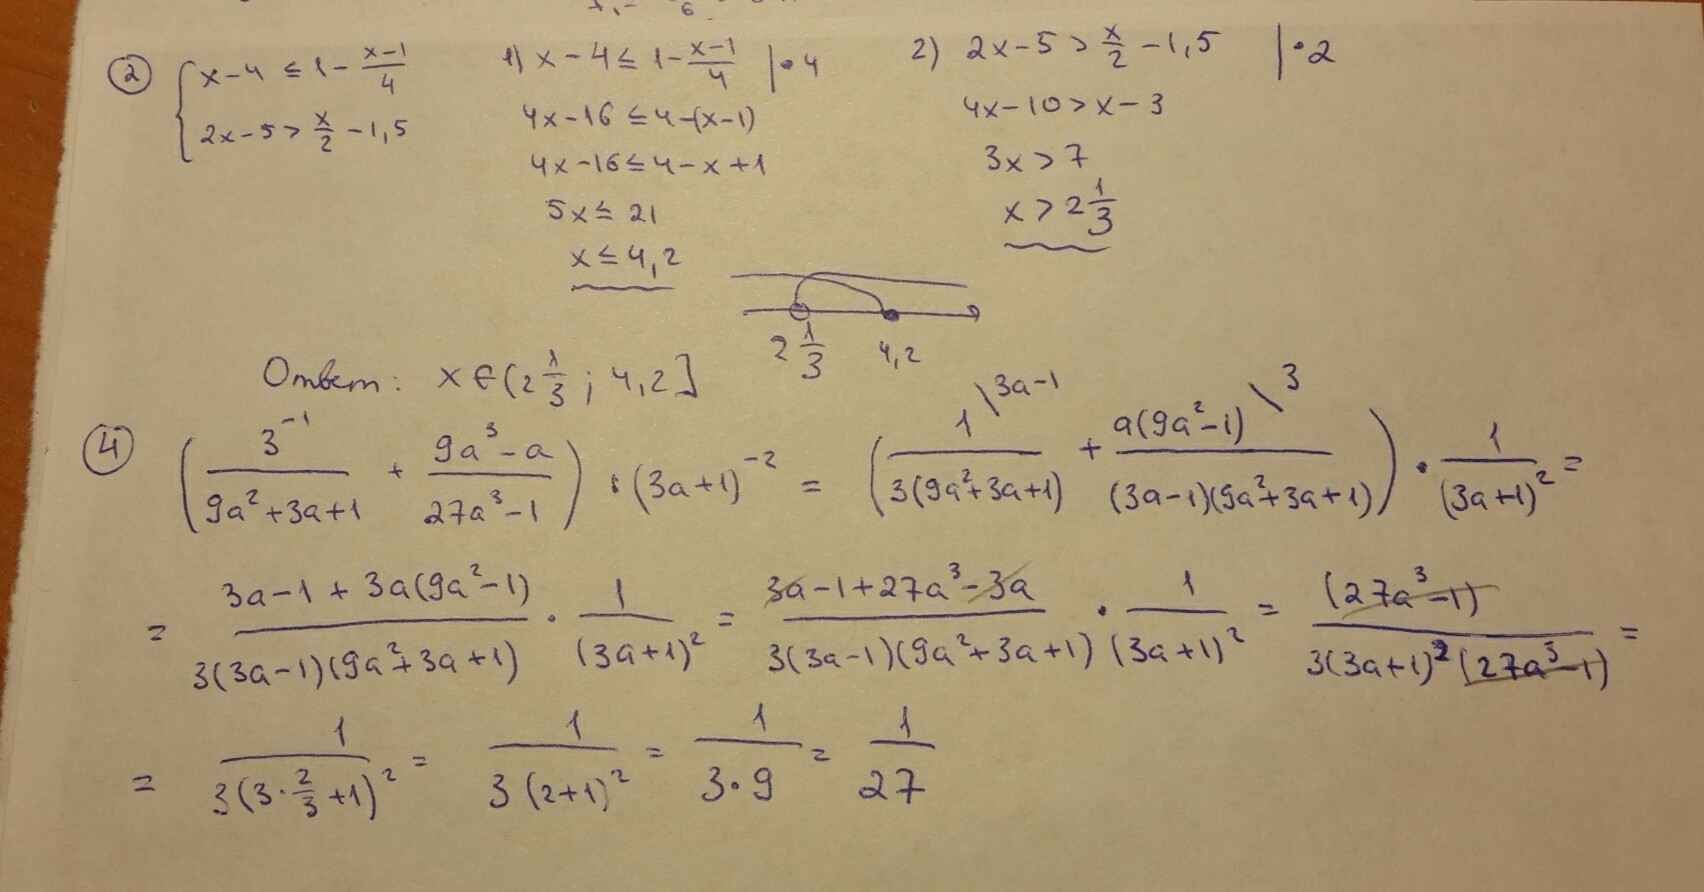 ② { x-4 ≤ 1 - (x-1)/4   1) x-4 ≤ 1 - (x-1)/4 | • 4   2) 2x-5 > x/2 - 1,5 | • 2
2x-5 > x/2 - 1,5   4x-16 ≤ 4-(x-1)   4x-10 > x-3
4x-16 ≤ 4-x+1   3x > 7
5x ≤ 21   x > 2 1/3
x ≤ 4,2
2 1/3   4,2
Ответ: x ∈ (2 1/3 ; 4,2]
④ (3⁻¹/(9a²+3a+1) + (9a³-a)/(27a³-1)) • (3a+1)⁻² = (1\3a-1/(3(9a²+3a+1)) + a(9a²-1)\3/((3a-1)(9a²+3a+1))) • 1/(3a+1)² =
= (3a-1+3a(9a²-1))/(3(3a-1)(9a²+3a+1)) • 1/(3a+1)² = (3a-1+27a³-3a)/(3(3a-1)(9a²+3a+1)) • 1/(3a+1)² = (27a³-1)/(3(3a+1)²(27a³-1)) =
= 1/(3(3•2/3+1)²) = 1/(3(2+1)²) = 1/(3•9) = 1/27